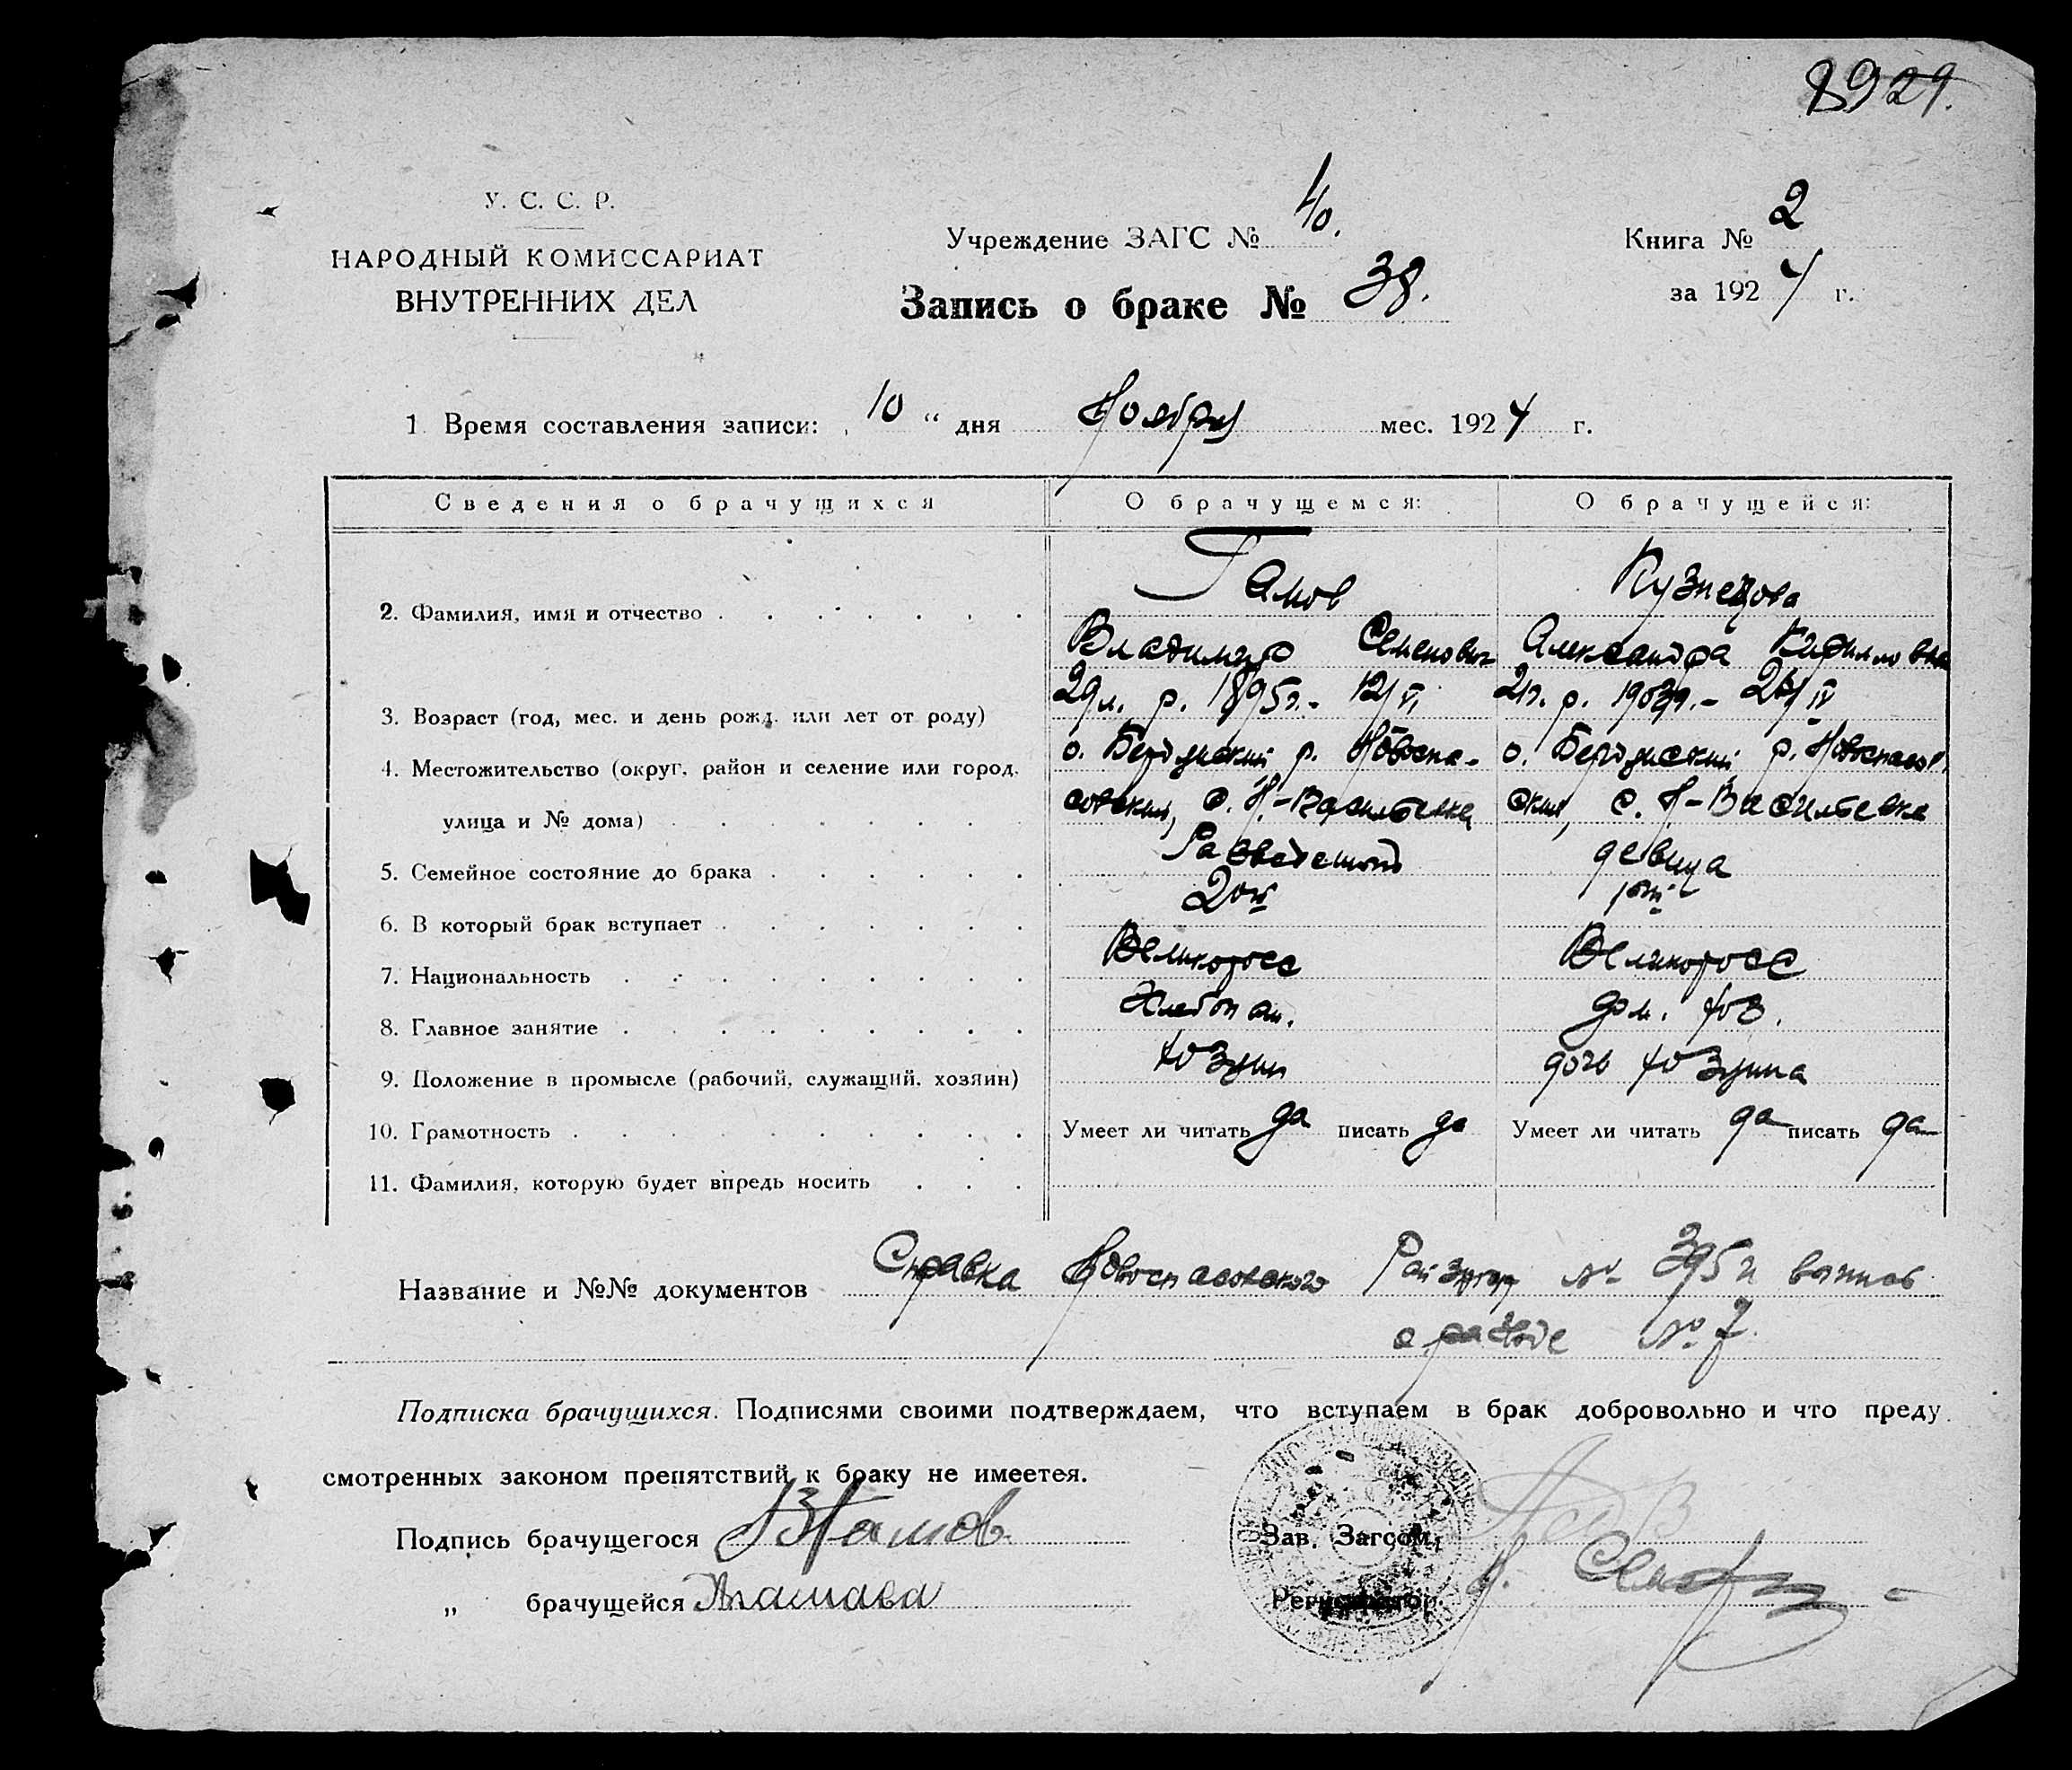 8929.
У. С. С. Р.
НАРОДНЫЙ КОМИССАРИАТ
ВНУТРЕННИХ ДЕЛ
Учреждение ЗАГС № 40.
Запись о браке № 38.
Книга № 2
за 1924 г.
1 Время составления записи: 10 “ дня Ноября мес. 1924 г.
Сведения о брачущихся О брачущемся: О брачущейся:
2. Фамилия, имя и отчество Гамов Кузнецова
Владимир Семенович Александра Кирилловна
3. Возраст (год, мес. и день рожд. или лет от роду) 29 л. р. 1895 г. - 12/V. 21 г. р. 1903 г. - 24/IV
4. Местожительство (округ, район и селение или город, о. Бердянский р. Новоспа- о. Бердянский р. Новоспасов
улица и № дома) совский, с. Н-Васильевка ский, с. Н-Васильевка
5. Семейное состояние до брака Разведеный девица
6. В который брак вступает 2ой 1ый
7. Национальность Великоросс Великоросс
8. Главное занятие Хлебопаш. дом. хоз.
9. Положение в промысле (рабочий, служащий, хозяин) хозяин дочь хозяина
10. Грамотность Умеет ли читать да писать да Умеет ли читать да писать да
11. Фамилия, которую будет впредь носить
Название и №№ документов Справка Новоспасовского № 3952 выпись
о разводе № 7.
Подписка брачущихся. Подписями своими подтверждаем, что вступаем в брак добровольно и что преду
смотренных законом препятствий к браку не имеется.
Подпись брачущегося ВГамов
„ брачущейся Агамава
Зав. Загсом,
Регистратор